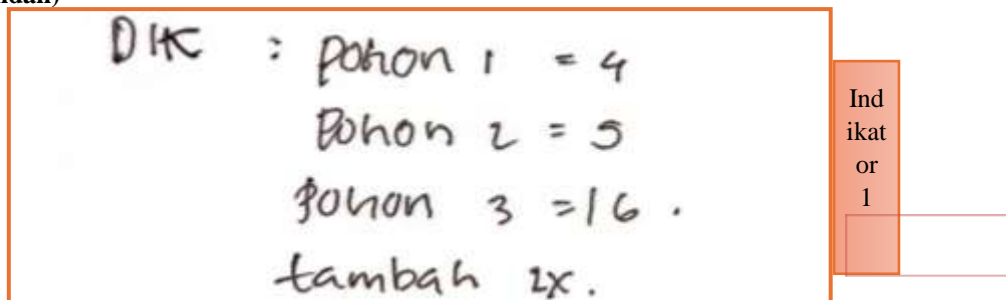 DIK : pohon 1 = 4
Pohon 2 = 5
pohon 3 = 16 .
tambah 2x .
Ind
ikat
or
1